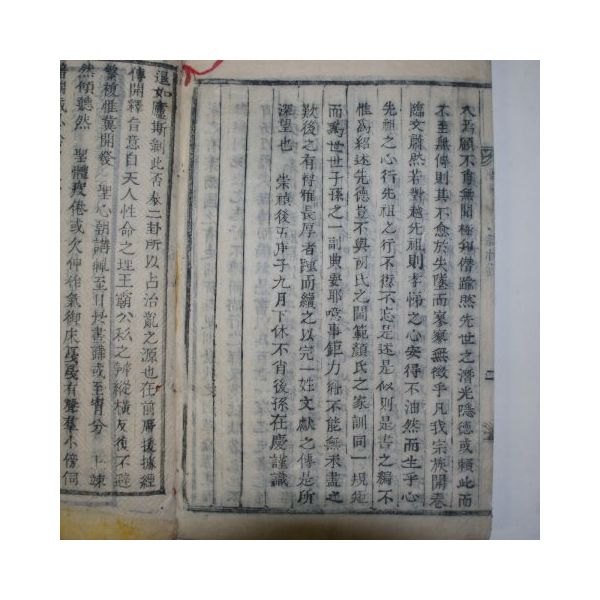 人爲顧不肖無聞極知僭踰然先世之潛光隱德或賴此而
不至無傳則其不愈於失墜而寥寥無徵乎凡我宗族開卷
臨文肅然若對越先祖則孝悌之心安得不油然而生乎心
先祖之心行先祖之行不愆不忘是述是似則是書之編不
惟爲紹述先德豈不與呂氏之閫範顔氏之家訓同一規矩
而爲世世子孫之一訓典要耶噫事鉅力綿不能無未盡之
歎後之有博雅長厚者踵而續之以完一姓文獻之傳是所
深望也 崇禎後五庚子九月下休不肖後孫在慶謹識
逞如盧斯剝此否泰二卦所以占治亂之源也在前席援據經
傳開釋旨意自天人性命之理王霸公私之辨縱橫反復不避
繁複雅冀開發 聖心朝講輒至日昃書講或至宵分 上竦
然傾聽然 聖體疲倦或欠伸作氣御床戛戛有聲羣小傍伺